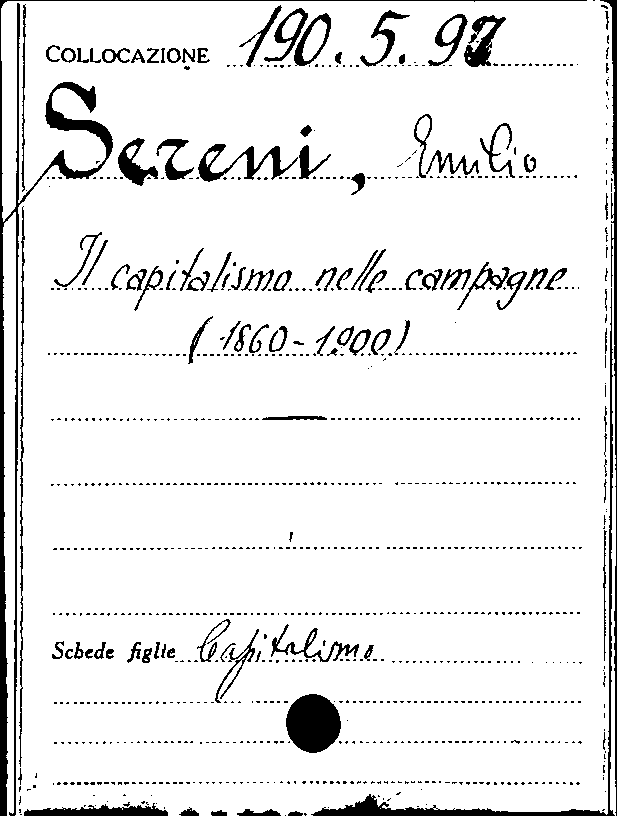 COLLOCAZIONE 190.5.97
Sereni, Emilio
Il capitalismo nelle campagne
(1860-1900)
Schede figlie Capitalismo